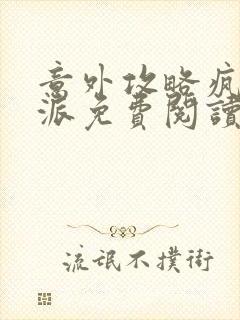 意外攻略疯
派免費閱讀
流氓不撲街